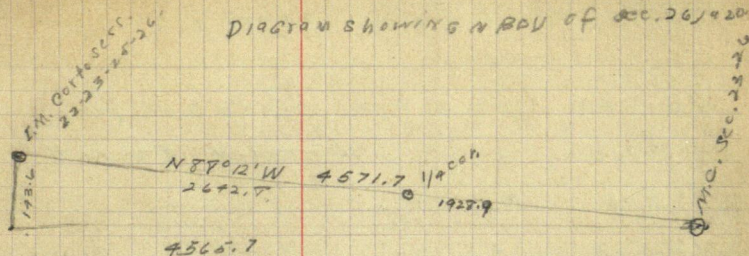 Diagram showing N BDY of sec. 26,
I.M. Cor to secs.
22-23-25-26.
M.C. Sec. 23-26
N 87° 12' W 4571.7 1/4 cor.
2642.7 1928.9
193.6
4565.7